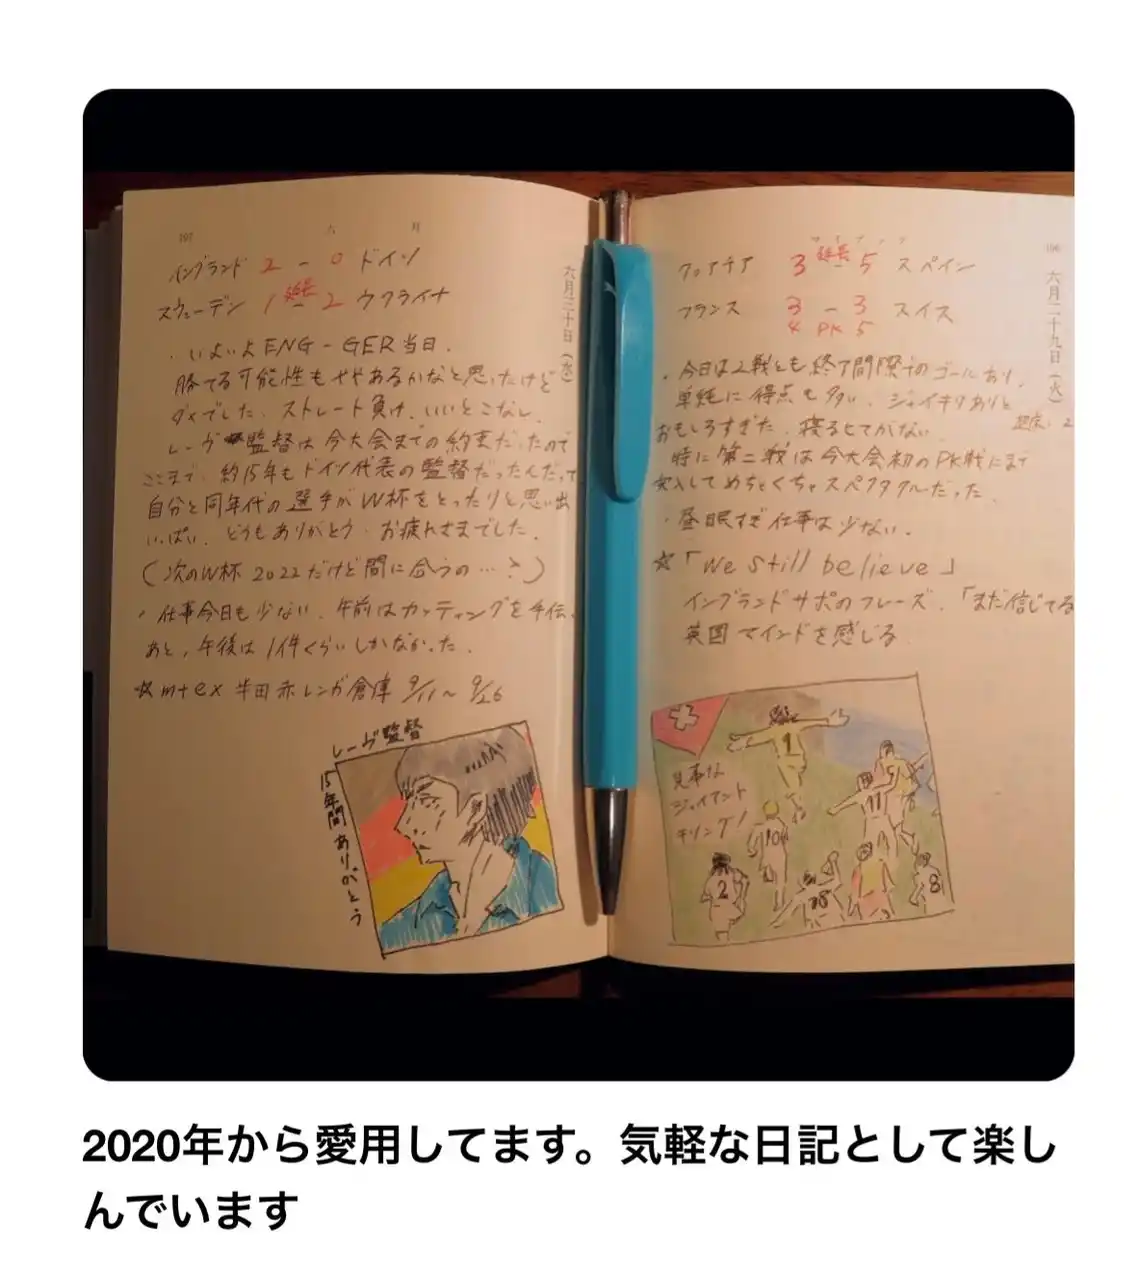 六月
六月二十九日(火)
クロアチア 3 延長 5 スペイン
フランス 3 - 3 スイス
4 PK 5
・今日は2戦とも終了間際のゴールあり、
単純に得点も多い、ジャイキリありと
おもしろすぎた。寝るヒマがない。
時に第二戦は今大会初のPK戦にまで
突入してめちゃくちゃスペクタクルだった。
・昼眠すぎ仕事は少ない。
☆「We still believe」
イングランドサポのフレーズ。「まだ信じてる
英国マインドを感じる
見事な
ジャイアント
キリング!
1
10
11
2
18
8
107
六月三十日(水)
イングランド 2 - 0 ドイツ
スウェーデン 1 延長 2 ウクライナ
・いよいよENG-GER当日。
勝てる可能性もややあるかなと思ったけど
ダメでした。ストレート負け。いいとこなし。
レーヴ監督は今大会までの約束だったので
ここまで。約15年もドイツ代表の監督だったんだって
自分と同年代の選手がW杯をとったりと思い出
いっぱい。どうもありがとう。お疲れさまでした。
(次のW杯2022だけど間に合うの…?)
・仕事今日も少ない。午前はカッティングを手伝
あと、午後は1件くらいしかなかった。
☆m+ex 半田赤レンガ倉庫 9/11~9/26
レーヴ監督
15年間ありがとう
2020年から愛用してます。気軽な日記として楽し
んでいます